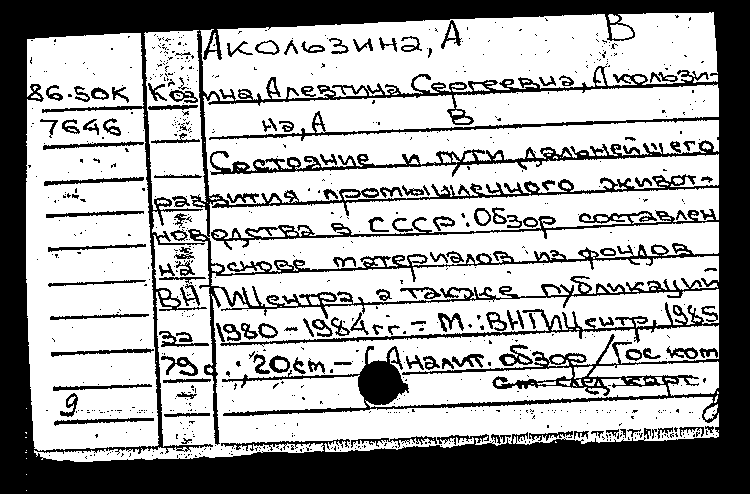 Акользина, А В
86.50К Козина, Алевтина Сергеевна, Акользи-
7646 на, А В
Состояние и пути дальнейшего
развития промышленного живот-
новодства в СССР: Обзор составлен
на основе материалов из фондов
ВНТИЦентра, а также публикаций
за 1980-1984 гг. - М.: ВНТИЦентр, 1985
79 с.; 20 см. - (Аналит. обзор / Гос ком
см. след. карт.
9